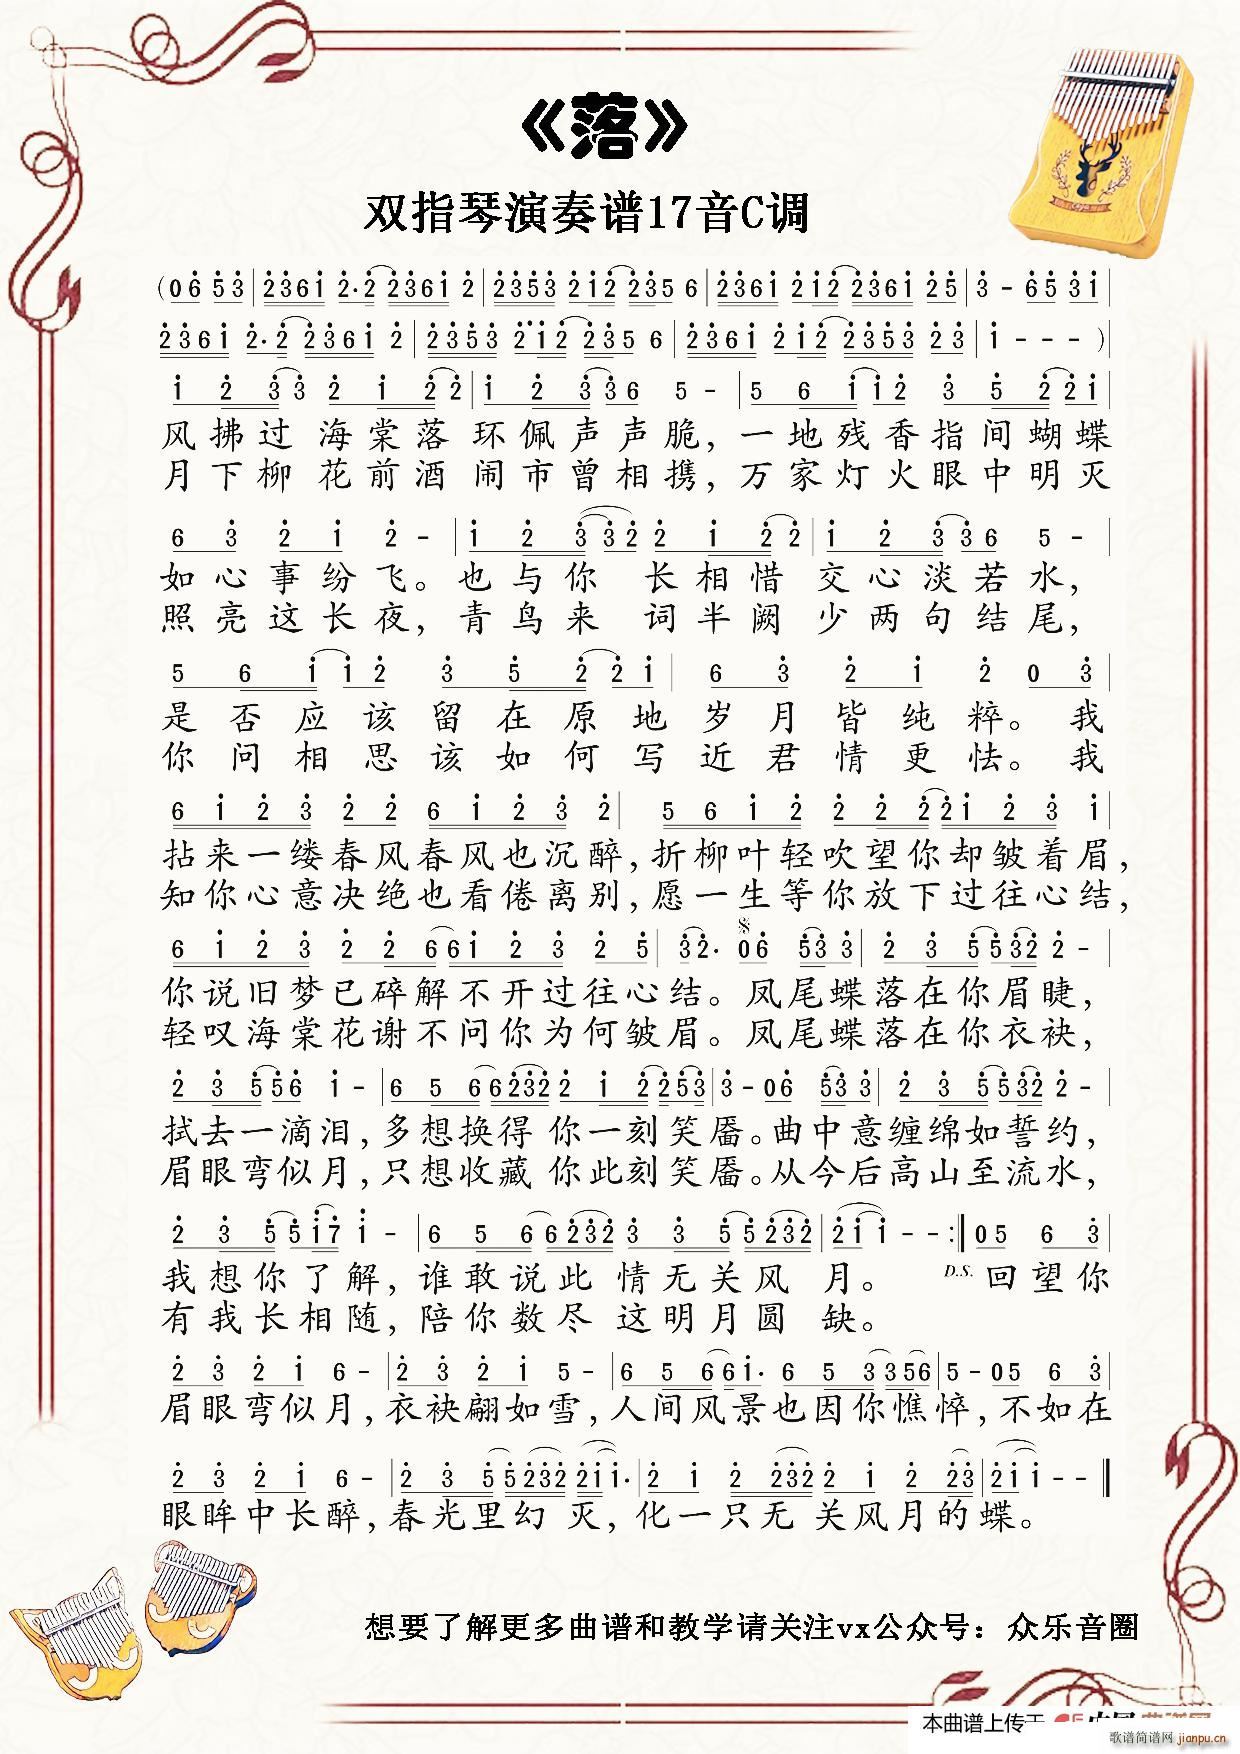 《落》
双指琴演奏谱17音C调
(0 6 5 3 | 2 3 6 1 2· 2 2 3 6 1 2 | 2 3 5 3 2 1 2 2 3 5 6 | 2 3 6 1 2 1 2 2 3 6 1 2 5 | 3 - 6 5 3 1 |
2 3 6 1 2· 2 2 3 6 1 2 | 2 3 5 3 2 1 2 2 3 5 6 | 2 3 6 1 2 1 2 2 3 5 3 2 3 | 1 - - - ) |
1 2 3 3 2 1 2 2 | 1 2 3 3 6 5 - | 5 6 1 1 2 3 5 2 2 1
风拂过 海棠落 环佩声声脆，一地残香指间蝴蝶
月下柳 花前酒 闹市曾相携，万家灯火眼中明灭
6 3 2 1 2 - | 1 2 3 3 2 2 1 2 2 | 1 2 3 3 6 5 - |
如心事纷飞。也与你 长相惜 交心淡若水，
照亮这长夜，青鸟来 词半阙 少两句结尾，
5 6 1 1 2 3 5 2 2 1 | 6 3 2 1 2 0 3 |
是否应该留在原地岁月皆纯粹。我
你问相思该如何写近君情更怯。我
6 1 2 3 2 2 6 1 2 3 2 | 5 6 1 2 2 2 2 2 1 2 3 1 |
拈来一缕春风春风也沉醉，折柳叶轻吹望你却皱着眉，
知你心意决绝也看倦离别，愿一生等你放下过往心结，
6 1 2 3 2 2 6 6 1 2 3 2 5 | 3 2· 0 6 5 3 3 | 2 3 5 5 3 2 2 - |
你说旧梦已碎解不开过往心结。凤尾蝶落在你眉睫，
轻叹海棠花谢不问你为何皱眉。凤尾蝶落在你衣袂，
2 3 5 5 6 1 - | 6 5 6 6 2 3 2 2 1 2 2 5 3 | 3 - 0 6 5 3 3 | 2 3 5 5 3 2 2 - |
拭去一滴泪，多想换得 你一刻笑靥。曲中意缠绵如誓约，
眉眼弯似月，只想收藏 你此刻笑靥。从今后高山至流水，
2 3 5 5 1 7 1 - | 6 5 6 6 2 3 2 3 3 5 5 2 3 2 | 2 1 1 - - :‖ 0 5 6 3 |
我想你了解，谁敢说此 情无关风 月。 D.S. 回望你
有我长相随，陪你数尽 这明月圆 缺。
2 3 2 1 6 - | 2 3 2 1 5 - | 6 5 6 6 1· 6 5 3 3 5 6 | 5 - 0 5 6 3 |
眉眼弯似月，衣袂翩如雪，人间风景也因你憔悴，不如在
2 3 2 1 6 - | 2 3 5 5 2 3 2 2 1 1· | 2 1 2 2 3 2 2 1 2 2 3 | 2 1 1 - - ‖
眼眸中长醉，春光里幻 灭，化一只无 关风月的蝶。
想要了解更多曲谱和教学请关注vx公众号：众乐音圈
本曲谱上传于
歌谱简谱网 jianpu.cn